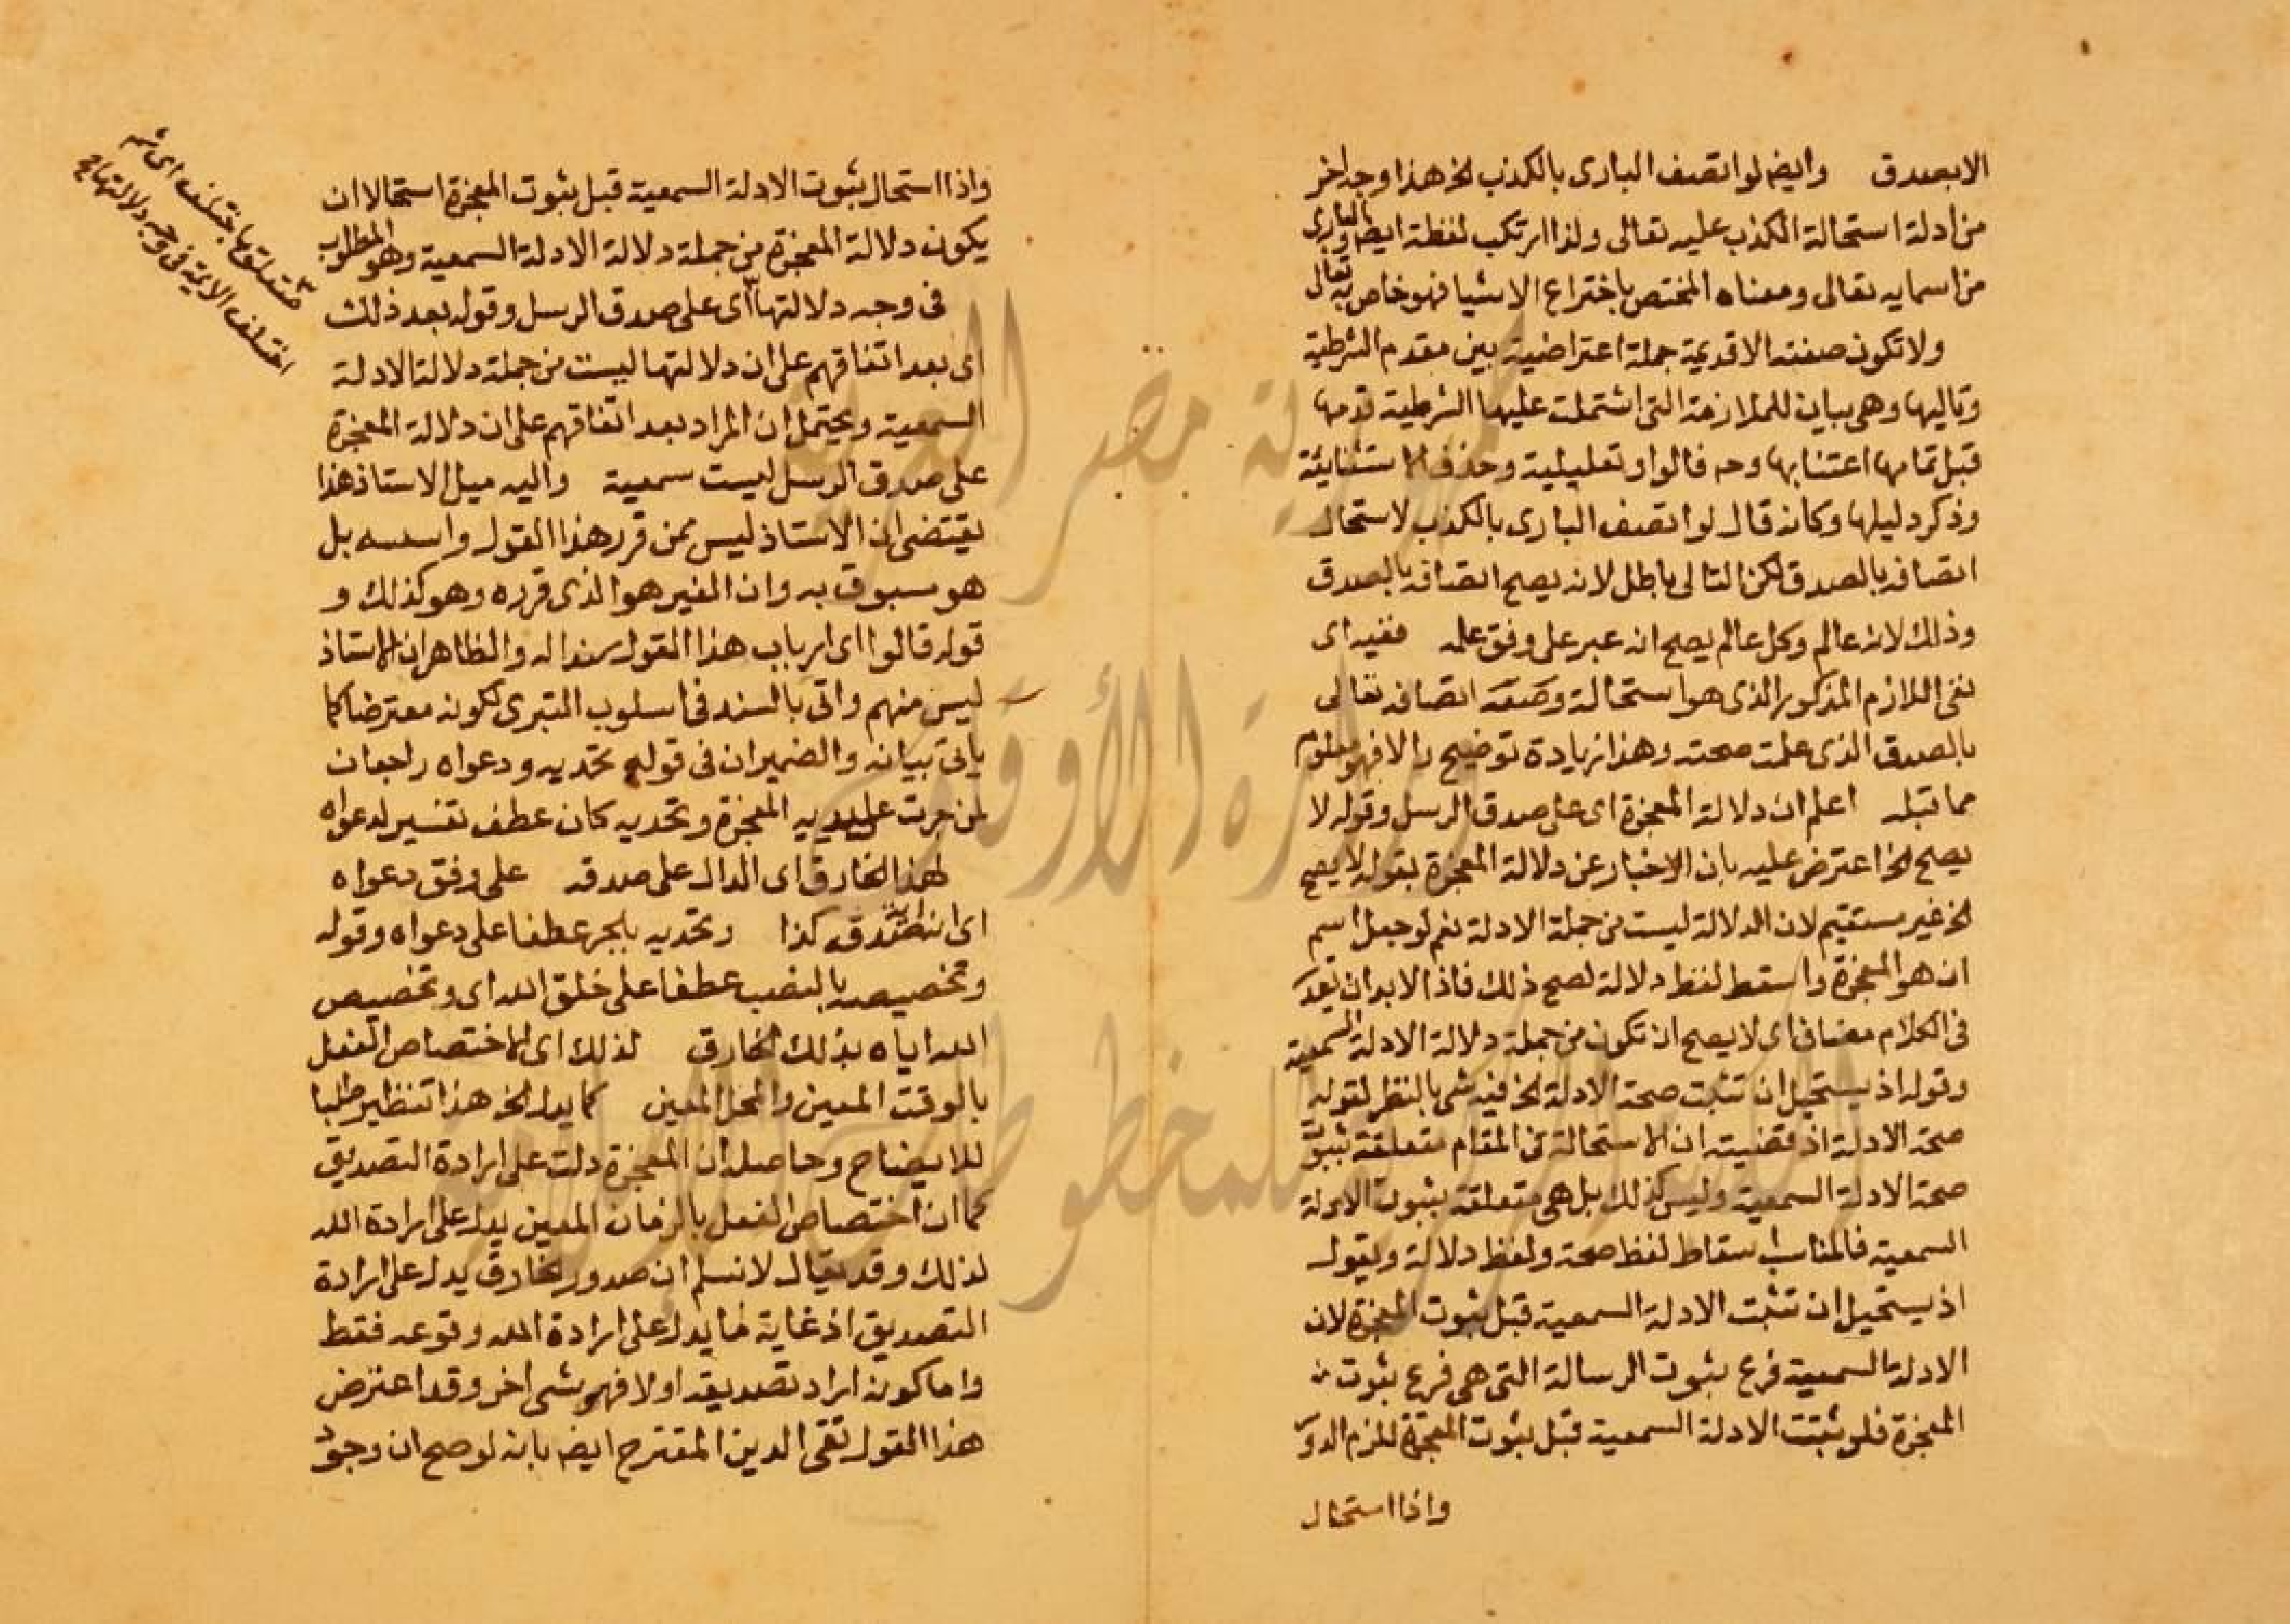 الا بصدق وايضا لو اتصف البارى بالكذب الخ هذا وجه اخر
من ادلة استحالة الكذب عليه تعالى ولذا ارتكب لفظة ايضا والبارى
من اسمايه تعالى ومعناه المختص باختراع الاشيا فهو خاص به تعالى
ولا تكون صفته الا قديمة جملة اعتراضية بين مقدم الشرطية
وتاليها وهى بيان للملازمة التى اشتملت عليها الشرطية قدمها
قبل تمامها اعتنا بها وحه فالواو تعليلية وحذف الاستثنائية
وذكر دليلها وكانه قال لو اتصف البارى بالكذب لاستحال
اتصافه بالصدق لكن التالى باطل لانه يصح اتصافه بالصدق
وذلك لانه عالم وكل عالم يصح ان عبر على وفق علمه ففيه اى
نفى اللازم المذكور الذى هو استحالة اتصافه تعالى
بالصدق الذى علمت صحته وهذا زيادة توضيح والا فهو معلوم
مما قبله اعلم ان دلالة المعجزة اى على صدق الرسل وقوله لا
يصح الخ اعترض عليه بان الاخبار عن دلالة المعجزة بقوله لا يصح
الخ غير مستقيم لان الدلالة ليست من جملة الادلة نعم لو جعل اسم
ان هو المعجزة واسقط لفظ دلالة لصح ذلك فاذا لا بد ان يقدر
فى الكلام مضاف اى لا يصح ان تكون من جملة دلالة الادلة السمعية
وقوله اذ يستحيل ان تثبت صحة الادلة الخ فيه شى بالنظر لقوله
صحة الادلة اذ قضيته ان الاستحالة فى المقام متعلقة بثبوت
صحة الادلة السمعية وليس كذلك بل هى متعلقة بثبوت الادلة
السمعية فالمناسب اسقاط لفظ صحة ولفظ دلالة ويقول
اذ يستحيل ان تثبت الادلة السمعية قبل ثبوت المعجزة لان
الادلة السمعية فرع ثبوت الرسالة التى هى فرع ثبوت
المعجزة فلو ثبتت الادلة السمعية قبل ثبوت المعجزة للزم الدور
واذا استحال
واذا استحال ثبوت الادلة السمعية قبل ثبوت المعجزة استحال ان
يكون دلالة المعجزة من جملة دلالة الادلة السمعية وهو المطلوب
فى وجه دلالتها اى على صدق الرسل وقوله بعد ذلك
اى بعد اتفاقهم على ان دلالتها ليست من جملة دلالة الادلة
السمعية ويحتمل ان المراد بعد اتفاقهم على ان دلالة المعجزة
على صدق الرسل ليست سمعية واليه ميل الاستاذ هذا
يقتضى ان الاستاذ ليس ممن قرر هذا القول واسسه بل
هو مسبوق به وان الغير هو الذى قرره وهو كذلك و
قوله قالوا اى ارباب هذا القول سندا له والظاهر ان الاستاذ
ليس منهم واتى بالسند فى اسلوب التبرى لكونه معترضا كما
ياتى بيانه والضميران فى قوله تحديه ودعواه راجعان
لمن جرت على يديه المعجزة وتحديه كان عطف تفسير لدعواه
لهذا الخارق اى الدال على صدقه على وفق دعواه
كذا وتحديه بالجر عطفا على دعواه وقوله
وتخصيصه بالنصب عطفا على خلق الله اى وتخصيص
الله اياه بذلك الخارق لذلك اى لاختصاص الفعل
بالوقت المعين والمحل المعين كما يدل الخ هذا تنظير طلبا
للايضاح وحاصله ان المعجزة دلت على ارادة التصديق
كما ان اختصاص الفعل بالزمان المعين يدل على ارادة الله
لذلك وقد يقال لا نسلم ان صدور الخارق يدل على ارادة
التصديق اذ غاية ما يدل على ارادة الله وقوعه فقط
واما كونه اراد تصديقه اولا فهو شى اخر وقد اعترض
هذا القول تقى الدين المقترح ايضا بانه لو صح ان وجود
متعلق باختلف اى ثم
اختلف الايمة فى وجه دلالتها
جمهورية مصر العربية
وزارة الأوقاف
المكتبة المركزية للمخطوطات الإسلامية